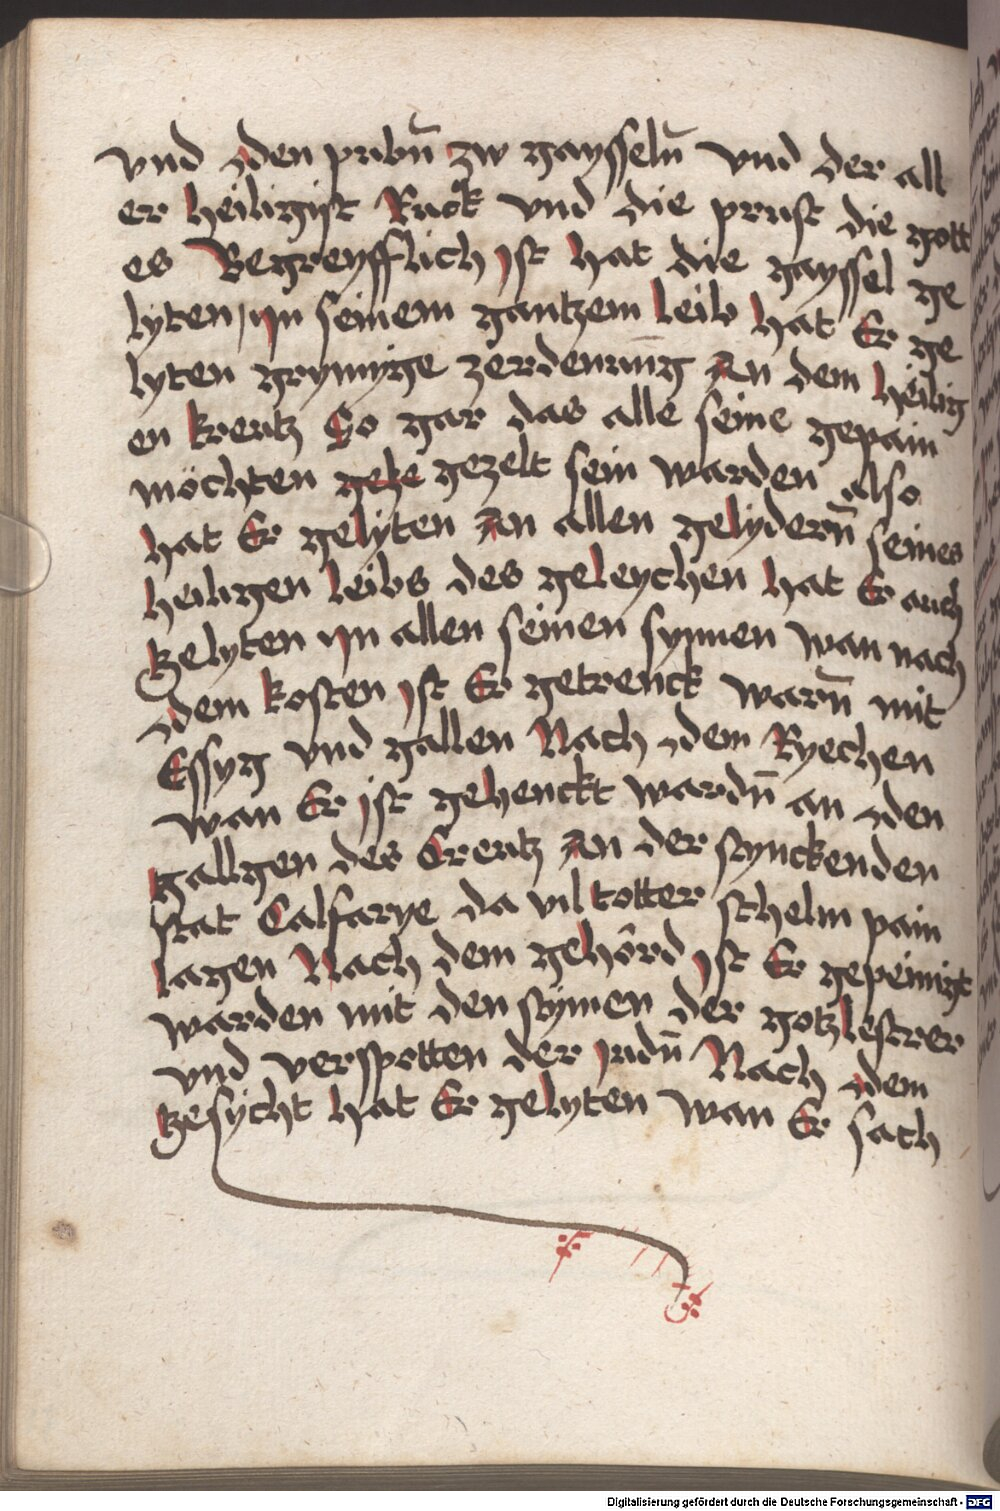 vnd den pubn̄ zw gaysseln̄ vnd der all
er heiligist Ruck vnd die prust die gott
es Begreyfflich ist hat die gayssel ge
lyten / in seinem gantzem leib hat Er ge
lyten grymige zerdenung An dem heilig
en kreutz So gar das alle seine gepain
möchten geze gezelt sein warden also
hat Er gelyten An allen gelydern̄ seines
heiligen leibs des geleychen hat Er auch
gelyten in allen seinen synnen wan nach
dem kosten ist Er getrenck warn̄ mit
Essyg vnd gallen Nach dem Ryechen
wan Er ist gehenckt wardn̄ an den
gallgen des Creutz An der stynckenden
stat Calfarye da vil totter schelm pain
lagen Nach dem gehörd ist Er gepeinigt
warden mit den stymen der gotzlestrer
vnd verspotten der judn̄ Nach dem
gesycht hat Er gelyten wan Er sach
Digitalisierung gefördert durch die Deutsche Forschungsgemeinschaft - DFG